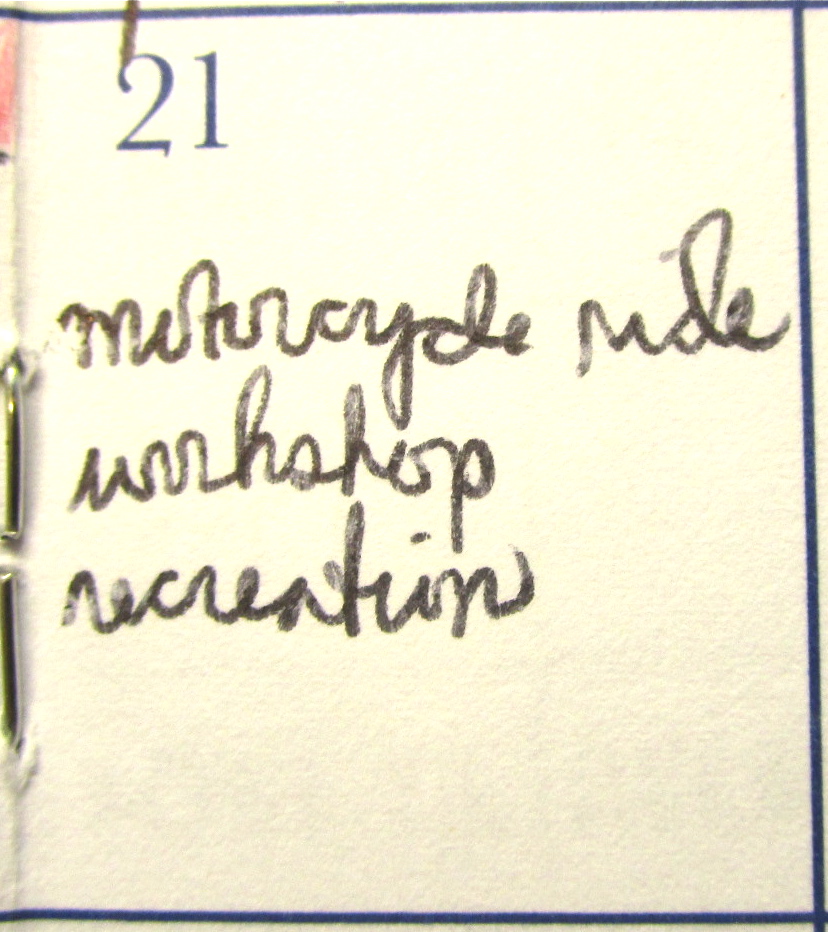 21
motorcycle ride
workshop
recreation